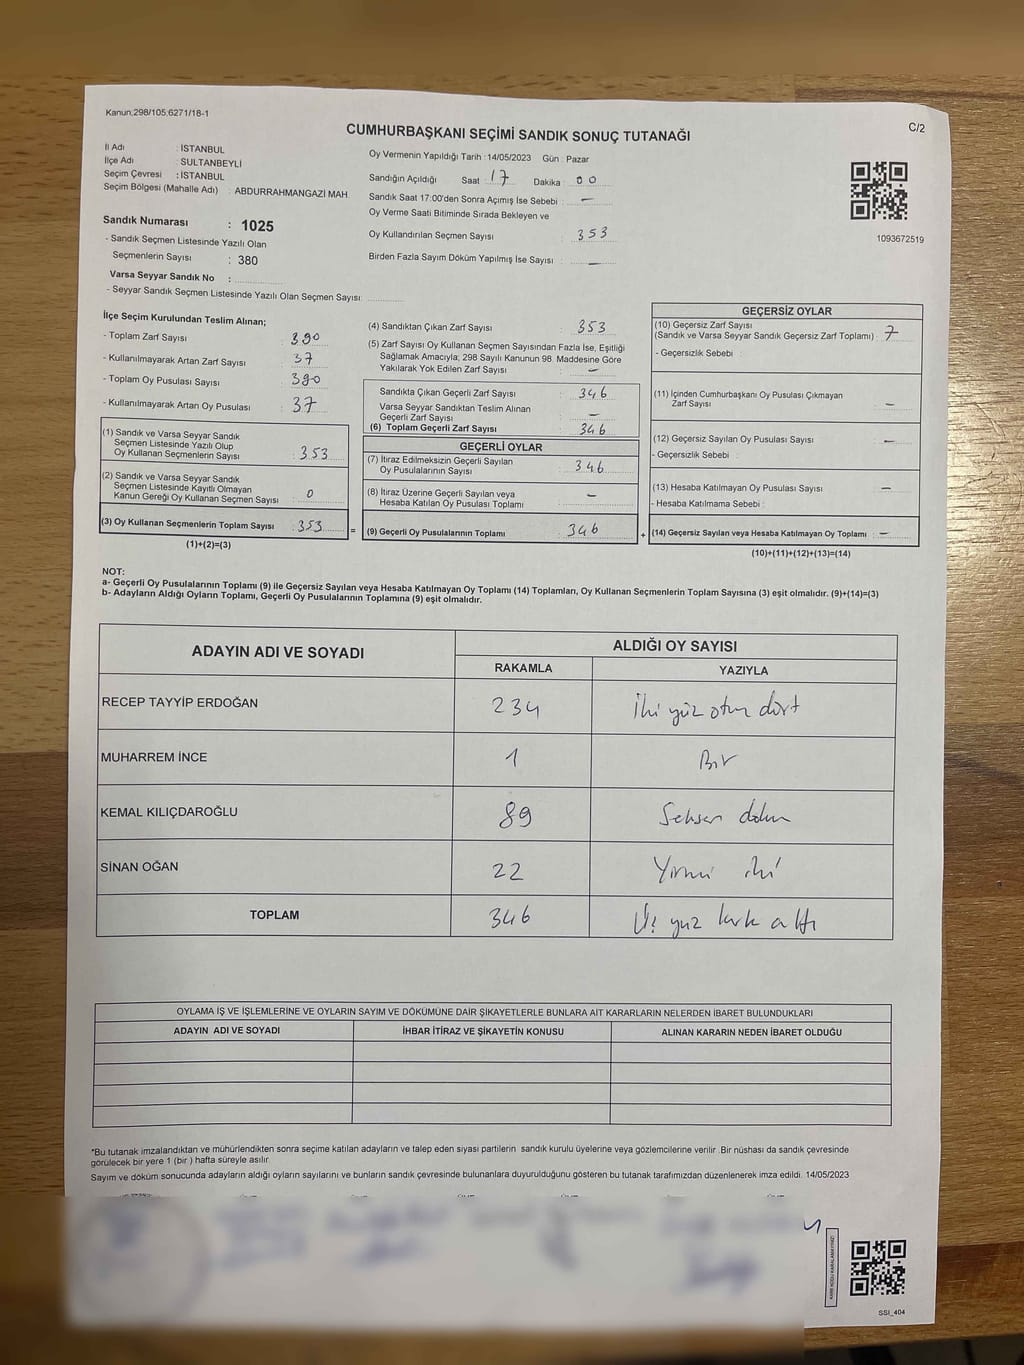 Kanun;298/105,6271/18-1
C/2
CUMHURBAŞKANI SEÇİMİ SANDIK SONUÇ TUTANAĞI
İl Adı : İSTANBUL
İlçe Adı : SULTANBEYLİ
Seçim Çevresi : İSTANBUL
Seçim Bölgesi (Mahalle Adı) : ABDURRAHMANGAZİ MAH.
Sandık Numarası : 1025
- Sandık Seçmen Listesinde Yazılı Olan
Seçmenlerin Sayısı : 380
Varsa Seyyar Sandık No :
- Seyyar Sandık Seçmen Listesinde Yazılı Olan Seçmen Sayısı:
Oy Vermenin Yapıldığı Tarih : 14/05/2023 Gün : Pazar
Sandığın Açıldığı Saat : 17 Dakika : 00
Sandık Saat 17:00'den Sonra Açımış İse Sebebi : –
Oy Verme Saati Bitiminde Sırada Bekleyen ve
Oy Kullandırılan Seçmen Sayısı : 353
Birden Fazla Sayım Döküm Yapılmış İse Sayısı : –
1093672519
İlçe Seçim Kurulundan Teslim Alınan;
- Toplam Zarf Sayısı : 390
- Kullanılmayarak Artan Zarf Sayısı : 37
- Toplam Oy Pusulası Sayısı : 390
- Kullanılmayarak Artan Oy Pusulası : 37
(1) Sandık ve Varsa Seyyar Sandık
Seçmen Listesinde Yazılı Olup
Oy Kullanan Seçmenlerin Sayısı : 353
(2) Sandık ve Varsa Seyyar Sandık
Seçmen Listesinde Kayıtlı Olmayan
Kanun Gereği Oy Kullanan Seçmen Sayısı : 0
(3) Oy Kullanan Seçmenlerin Toplam Sayısı : 353
(1)+(2)=(3)
=
(4) Sandıktan Çıkan Zarf Sayısı : 353
(5) Zarf Sayısı Oy Kullanan Seçmen Sayısından Fazla İse, Eşitliği
Sağlamak Amacıyla; 298 Sayılı Kanunun 98. Maddesine Göre
Yakılarak Yok Edilen Zarf Sayısı : –
Sandıkta Çıkan Geçerli Zarf Sayısı : 346
Varsa Seyyar Sandıktan Teslim Alınan
Geçerli Zarf Sayısı : –
(6) Toplam Geçerli Zarf Sayısı : 346
GEÇERLİ OYLAR
(7) İtiraz Edilmeksizin Geçerli Sayılan
Oy Pusulalarının Sayısı : 346
(8) İtiraz Üzerine Geçerli Sayılan veya
Hesaba Katılan Oy Pusulası Toplamı : –
(9) Geçerli Oy Pusulalarının Toplamı : 346
+
GEÇERSİZ OYLAR
(10) Geçersiz Zarf Sayısı
(Sandık ve Varsa Seyyar Sandık Geçersiz Zarf Toplamı) : 7
- Geçersizlik Sebebi :
(11) İçinden Cumhurbaşkanı Oy Pusulası Çıkmayan
Zarf Sayısı : –
(12) Geçersiz Sayılan Oy Pusulası Sayısı : –
- Geçersizlik Sebebi :
(13) Hesaba Katılmayan Oy Pusulası Sayısı : –
- Hesaba Katılmama Sebebi :
(14) Geçersiz Sayılan veya Hesaba Katılmayan Oy Toplamı : –
(10)+(11)+(12)+(13)=(14)
NOT:
a- Geçerli Oy Pusulalarının Toplamı (9) ile Geçersiz Sayılan veya Hesaba Katılmayan Oy Toplamı (14) Toplamları, Oy Kullanan Seçmenlerin Toplam Sayısına (3) eşit olmalıdır. (9)+(14)=(3)
b- Adayların Aldığı Oyların Toplamı, Geçerli Oy Pusulalarının Toplamına (9) eşit olmalıdır.
ADAYIN ADI VE SOYADI
ALDIĞI OY SAYISI
RAKAMLA YAZIYLA
RECEP TAYYİP ERDOĞAN 234 İki yüz otuz dört
MUHARREM İNCE 1 Bir
KEMAL KILIÇDAROĞLU 89 Seksen dokuz
SİNAN OĞAN 22 Yirmi iki
TOPLAM 346 Üç yüz kırk altı
OYLAMA İŞ VE İŞLEMLERİNE VE OYLARIN SAYIM VE DÖKÜMÜNE DAİR ŞİKAYETLERLE BUNLARA AİT KARARLARIN NELERDEN İBARET BULUNDUKLARI
ADAYIN ADI VE SOYADI İHBAR İTİRAZ VE ŞİKAYETİN KONUSU ALINAN KARARIN NEDEN İBARET OLDUĞU
*Bu tutanak imzalandıktan ve mühürlendikten sonra seçime katılan adayların ve talep eden siyası partilerin sandık kurulu üyelerine veya gözlemcilerine verilir .Bir nüshası da sandık çevresinde
görülecek bir yere 1 (bir ) hafta süreyle asılır.
Sayım ve döküm sonucunda adayların aldığı oyların sayılarını ve bunların sandık çevresinde bulunanlara duyurulduğunu gösteren bu tutanak tarafımızdan düzenlenerek imza edildi. 14/05/2023
KARE KODU KARALAMAYINIZ!
SSI_404